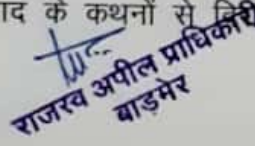 द के कथनों से
राजस्व अपील प्राधिकारी
बाड़मेर